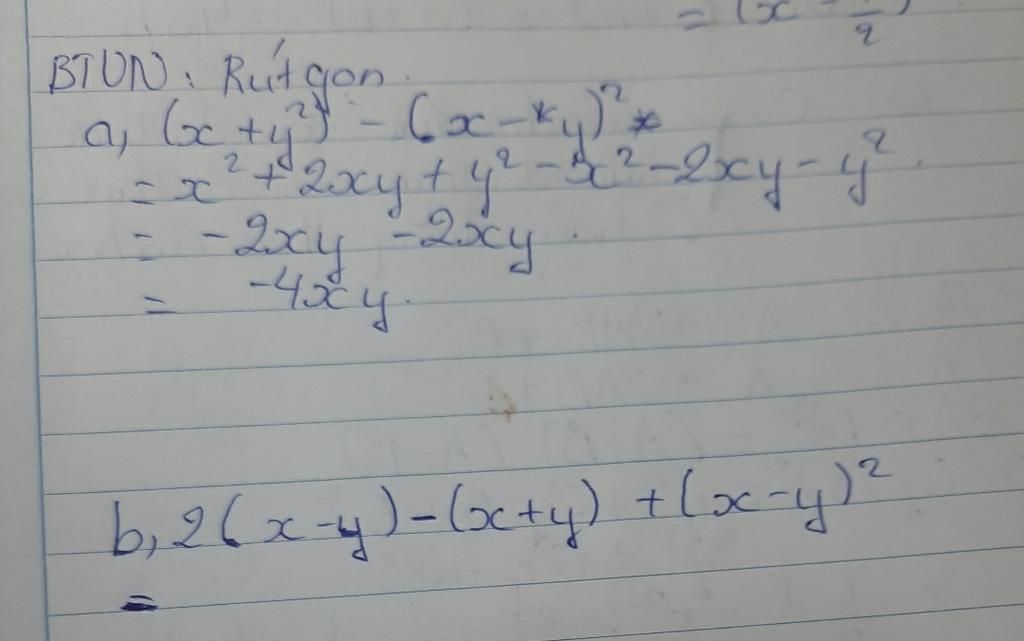 = (x -
2
BTVN: Rút gọn.
a, (x + y²) - (x - y)²
= x² + 2xy + y² - x² - 2xy - y².
= -2xy - 2xy.
= -4xy.
b, 2(x - y) - (x + y) + (x - y)²
=